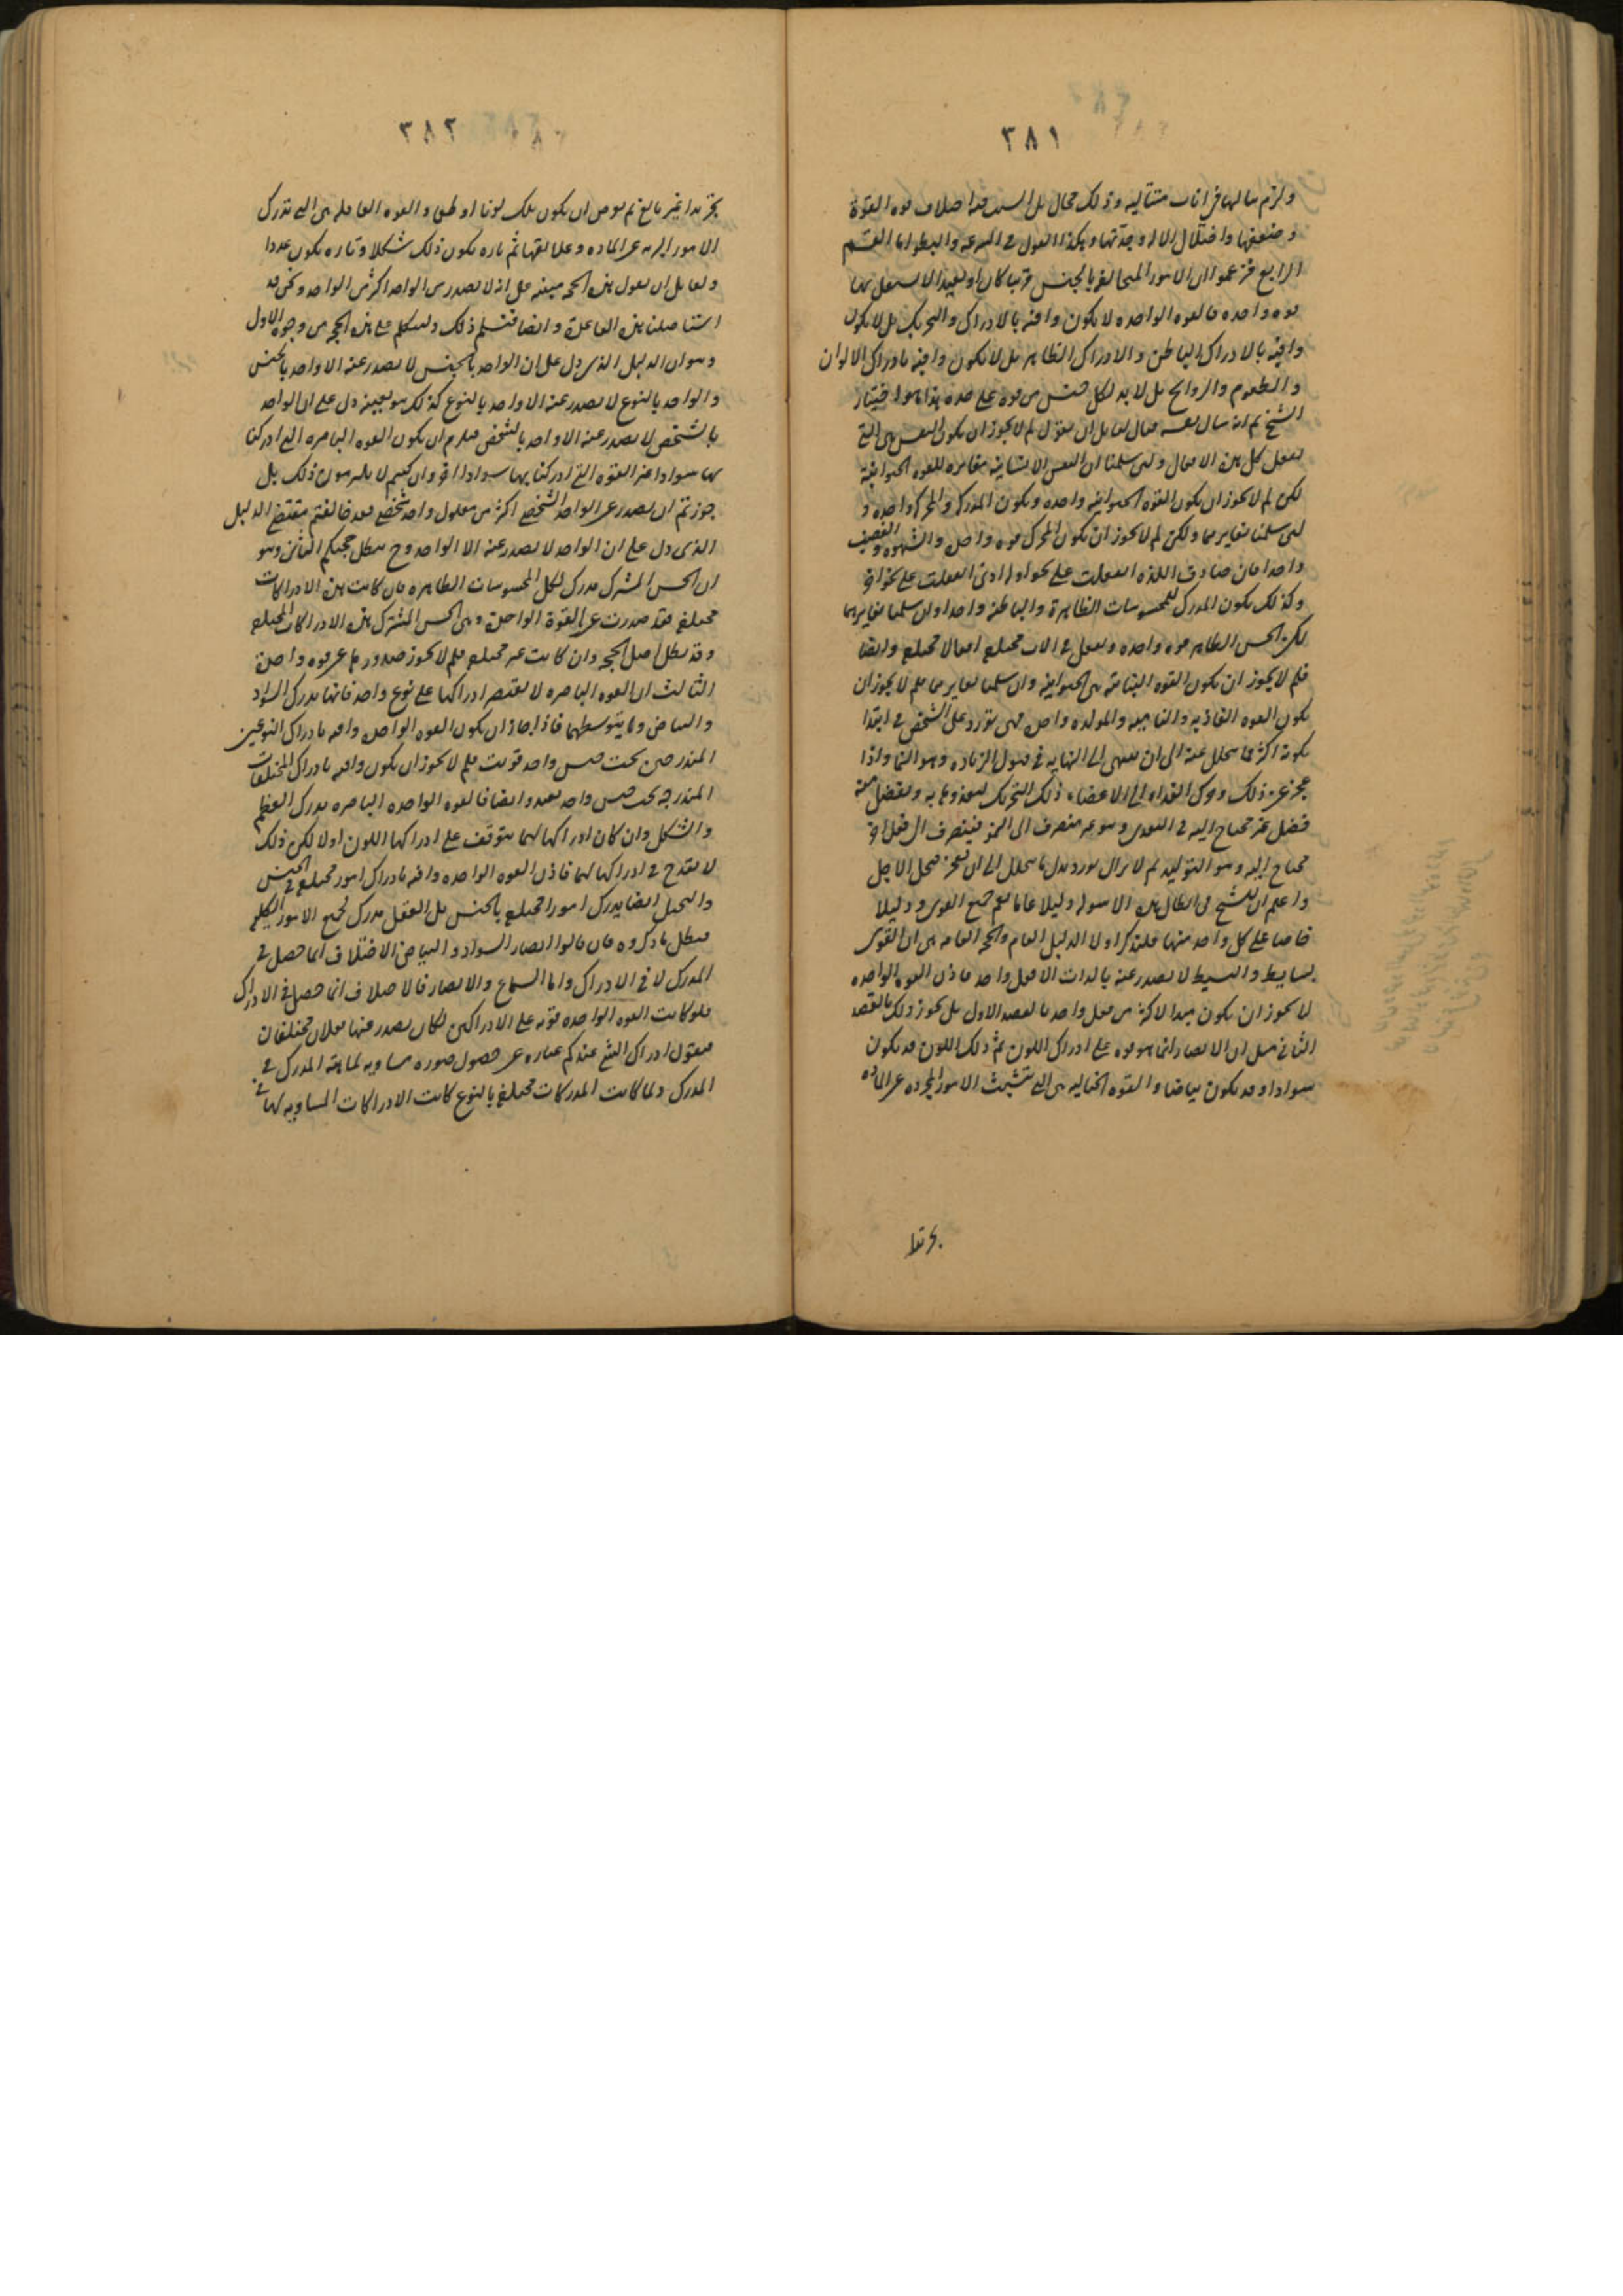 ٣٨١
ولزم سالهما فى انات متتالية وذلك محال بل السبب فيه اختلاف قوة القوة
وضعفها واختلال الالة وجدتها وهكذا القول فى السرعة والبطو اما القسم
الرابع فزعموا ان الامور المتخالفة بالجنس قريبا كان او بعيدا لا يستقل بها
قوة واحدة فالقوة الواحدة لا تكون وافية بالادراك والتحريك بل لا تكون
وافية بالادراك الباطن والادراك الظاهر بل لا تكون وافية بادراك الالوان
والطعوم والروائح بل لا بد لكل جنس من قوة على حدة هذا هو اختيار
الشيخ ثم انه سال نفسه فقال لقائل ان يقول لم لا يجوز ان تكون النفس هى التى
تفعل كل هذه الافعال ولئن سلمنا ان النفس الانسانية مغايرة للقوة الحيوانية
لكن لم لا يجوز ان تكون القوة الحيوانية واحدة ويكون المدرك والمحرك واحدة و
لئن سلمنا تغايرهما ولكن لم لا يجوز ان تكون المحرك قوة واحدة والشهوة والغضب
واحدا فان صادف اللذة انفعلت على نحو او الاذى انفعلت على نحو اخر
وكذلك يكون المدرك للمحسوسات الظاهرة والباطنة واحدا ولئن سلمنا تغايرهما
لكن الحس الظاهر قوة واحدة وتفعل فى الات مختلفة افعالا مختلفة وايضا
فلم لا يجوز ان تكون القوة النباتية هى الحيوانية وان سلمنا تغايرهما فلم لا يجوز ان
تكون القوة الغاذية والنامية والمولدة واحدة فهى تورد على الشخص فى ابتدا
تكونه اكثر مما يتحلل عنه الى ان ينتهى الى النهاية فى قبول الزيادة وهو النما واذا
عجز عن ذلك وحرك الغذاء الى الاعضاء ذلك التحريك لتغذوها به ويفضل عنه
فضل غير محتاج اليه فى التغذى وهو غير منصرف الى النمو فيتصرف الى فعل اخر
محتاج اليه وهو التوليد ثم لا يزال يورد بدل ما يتحلل الى ان تعجز فيحل الاجل
واعلم ان للشيخ فى ابطال هذه الاسولة دليلا عاما يعم جميع القوى ودليلا
خاصا على كل واحد منها فلنذكر اولا الدليل العام والحجة العامة هى ان القوى
بسايط والبسيط لا يصدر عنه بالذات الا فعل واحد فاذن القوة الواحدة
لا يجوز ان تكون مبدا لاكثر من فعل واحد بالقصد الاول بل يجوز ذلك بالقصد
الثانى مثل ان الابصار انما هو قوة على ادراك اللون ثم ذلك اللون قد يكون
سوادا وقد يكون بياضا والقوة الخيالية هى التى تتشبث الامور المجردة عن المادة
٣٨٢
تجريدا غير بالغ ثم يعرض ان يكون تلك لونا او طعما والقوة العاقلة هى التى تدرك
الامور البرية عن المادة وعلايقها ثم تارة يكون ذلك شكلا وتارة يكون عددا
ولقائل ان يقول هذه الحجة مبنية على انه لا يصدر من الواحد اكثر من الواحد ونحن قد
استاصلنا هذه القاعدة وايضا فنسلم ذلك ونتكلم على هذه الحجة من وجوه الاول
وهو ان الدليل الذى دل على ان الواحد بالجنس لا يصدر عنه الا واحد بالجنس
والواحد بالنوع لا يصدر عنه الا واحد بالنوع كذلك هو بعينه دل على ان الواحد
بالشخص لا يصدر عنه الا واحد بالشخص فيلزم ان يكون القوة الباصرة التى ادركنا
بها سوادا غير القوة التى ادركنا بها سوادا اخر وانكم لا تلتزمون ذلك بل
جوزتم ان يصدر عن الواحد الشخصى اكثر من معلول واحد شخصى فقد خالفتم مقتضى الدليل
الذى دل على ان الواحد لا يصدر عنه الا الواحد وح بطل حجتكم الثانى وهو
ان الحس المشترك مدرك لكل المحسوسات الظاهرة فان كانت هذه الادراكات
مختلفة فقد صدرت عن القوة الواحدة وهى الحس المشترك هذه الادراكات المختلفة
وقد بطل اصل الحجة وان كانت غير مختلفة فلم لا يجوز صدورها عن قوة واحدة
الثالث ان القوة الباصرة لا يقتصر ادراكها على نوع واحد فانها تدرك السواد
والبياض وما يتوسطهما فاذا جاز ان يكون القوة الواحدة وافية بادراك النوعين
المندرجين تحت جنس واحد قريب فلم لا يجوز ان يكون وافية بادراك المختلفات
المندرجة تحت جنس واحد بعيد وايضا فالقوة الواحدة الباصرة تدرك العظم
والشكل وان كان ادراكها لهما يتوقف على ادراكها اللون اولا لكن ذلك
لا يقدح فى ادراكها لهما فاذن القوة الواحدة وافية بادراك امور مختلفة فى الجنس
والتخيل ايضا يدرك امورا مختلفة بالجنس بل العقل يدرك لجميع الامور الكلية
فبطل ما ذكروه فان قالوا ابصار السواد والبياض الاختلاف انما حصل فى
المدرك لا فى الادراك واما السماع والابصار فالاختلاف انما حصل فى الادراك
فلو كانت القوة الواحدة قوية على الادراكين لكان يصدر عنها فعلان مختلفان
فنقول ادراك الشئ عندكم عبارة عن حصول صورة مساوية لماهية المدرك فى
المدرك ولما كانت المدركات مختلفة بالنوع كانت الادراكات المساوية لها فى
تجريدا